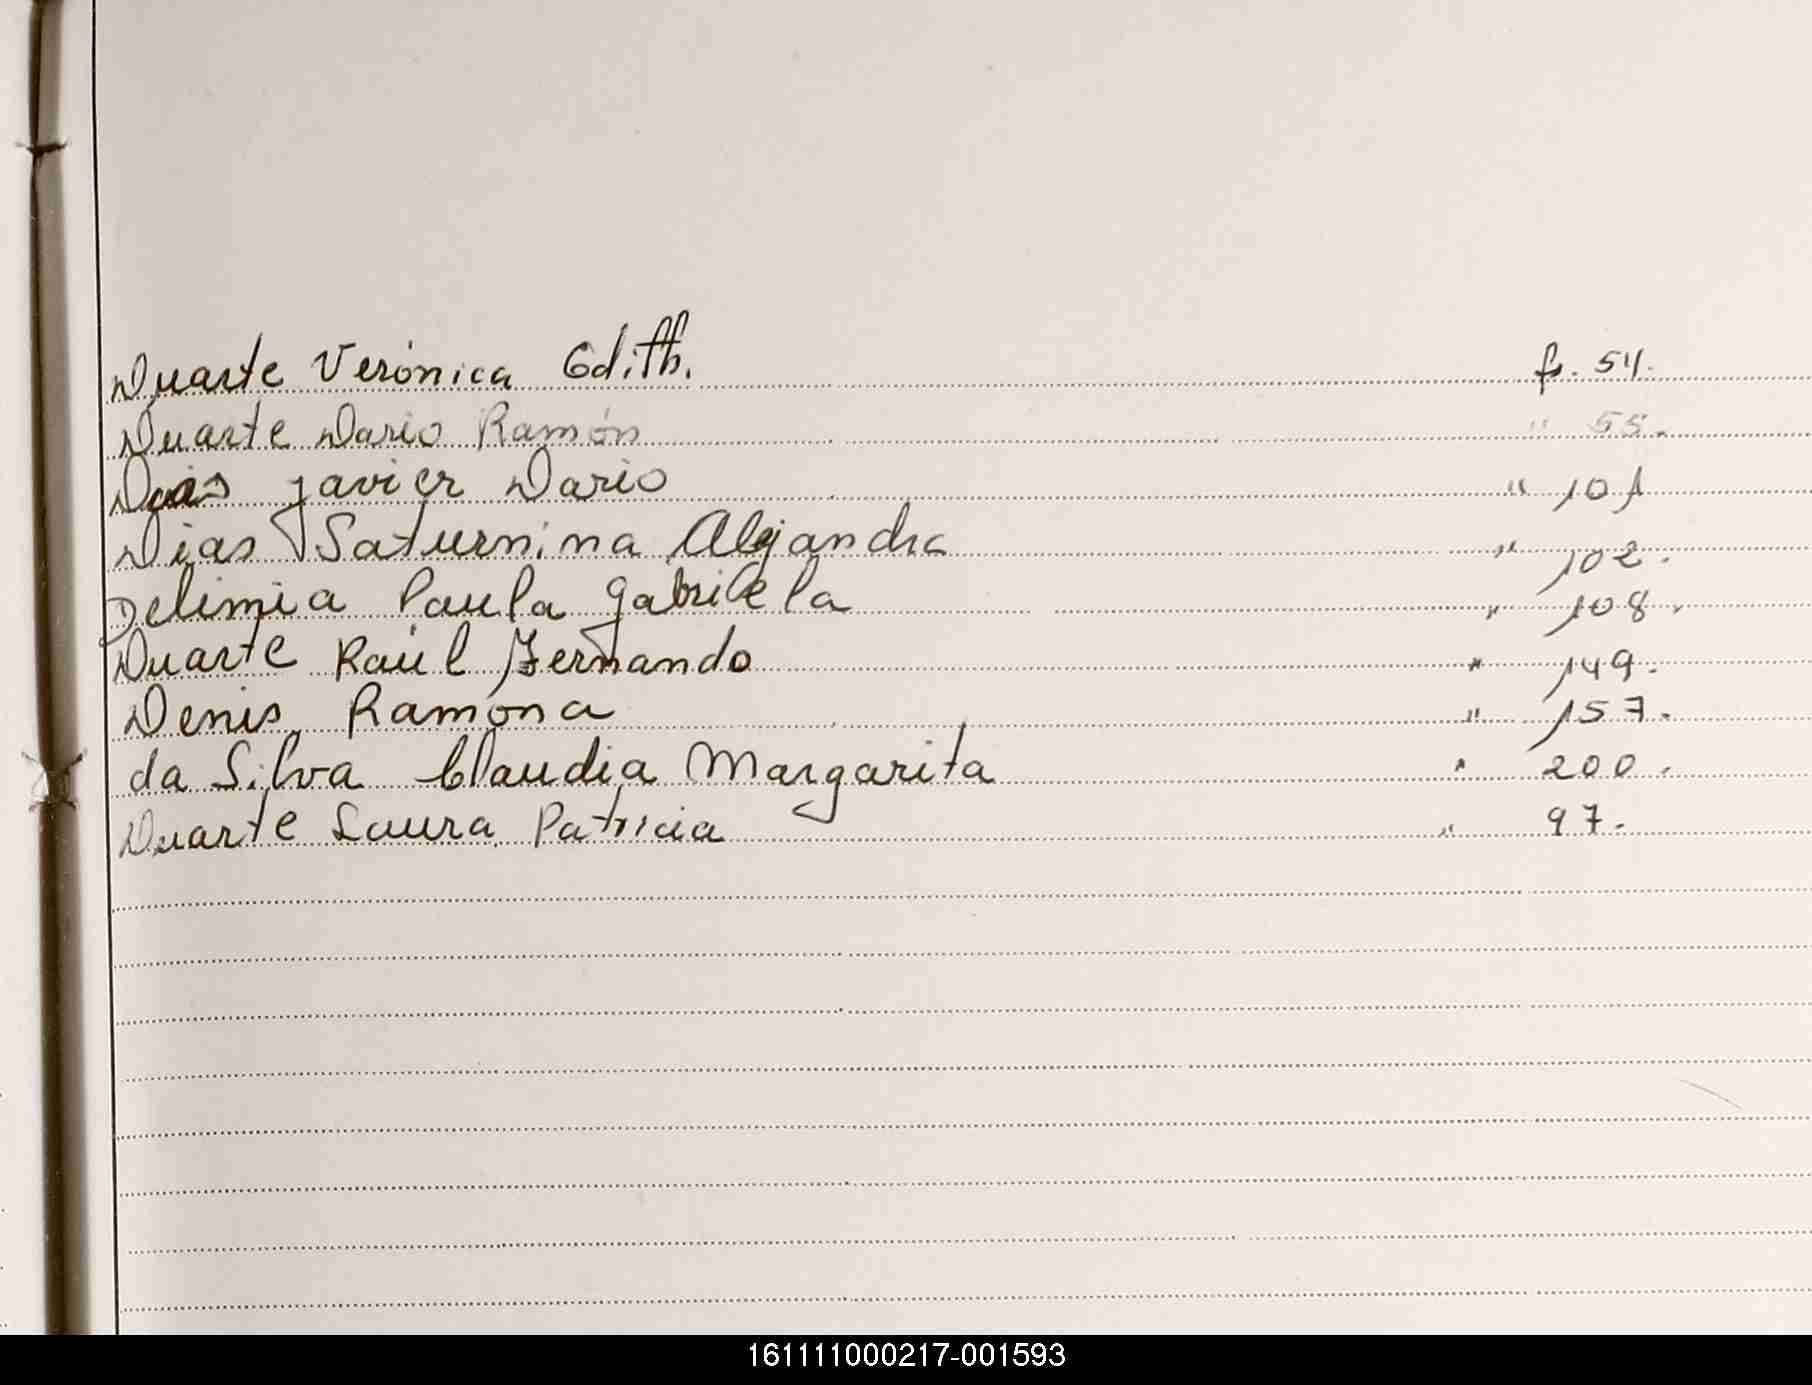 Duarte Verónica Edith. fs. 54.
Duarte Dario Ramón " 55.
Dias Javier Dario " 101
Dias Saturnina Alejandra " 102.
Delimia Paula Gabriela " 108.
Duarte Raúl Fernando " 149.
Denis Ramona " 157.
da Silva Claudia Margarita " 200.
Duarte Laura Patricia " 97.
161111000217-001593